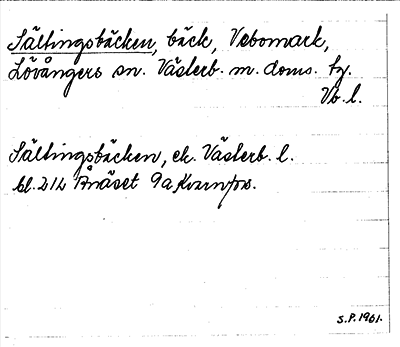 Sältingsbäcken, bäck, Vebomark,
Lövångers sn. Västerb. m. doms. tg.
Vb. l.
Sältingsbäcken, ek. Västerb. l.
bl. 21L Ånäset 9a
S.P. 1961.